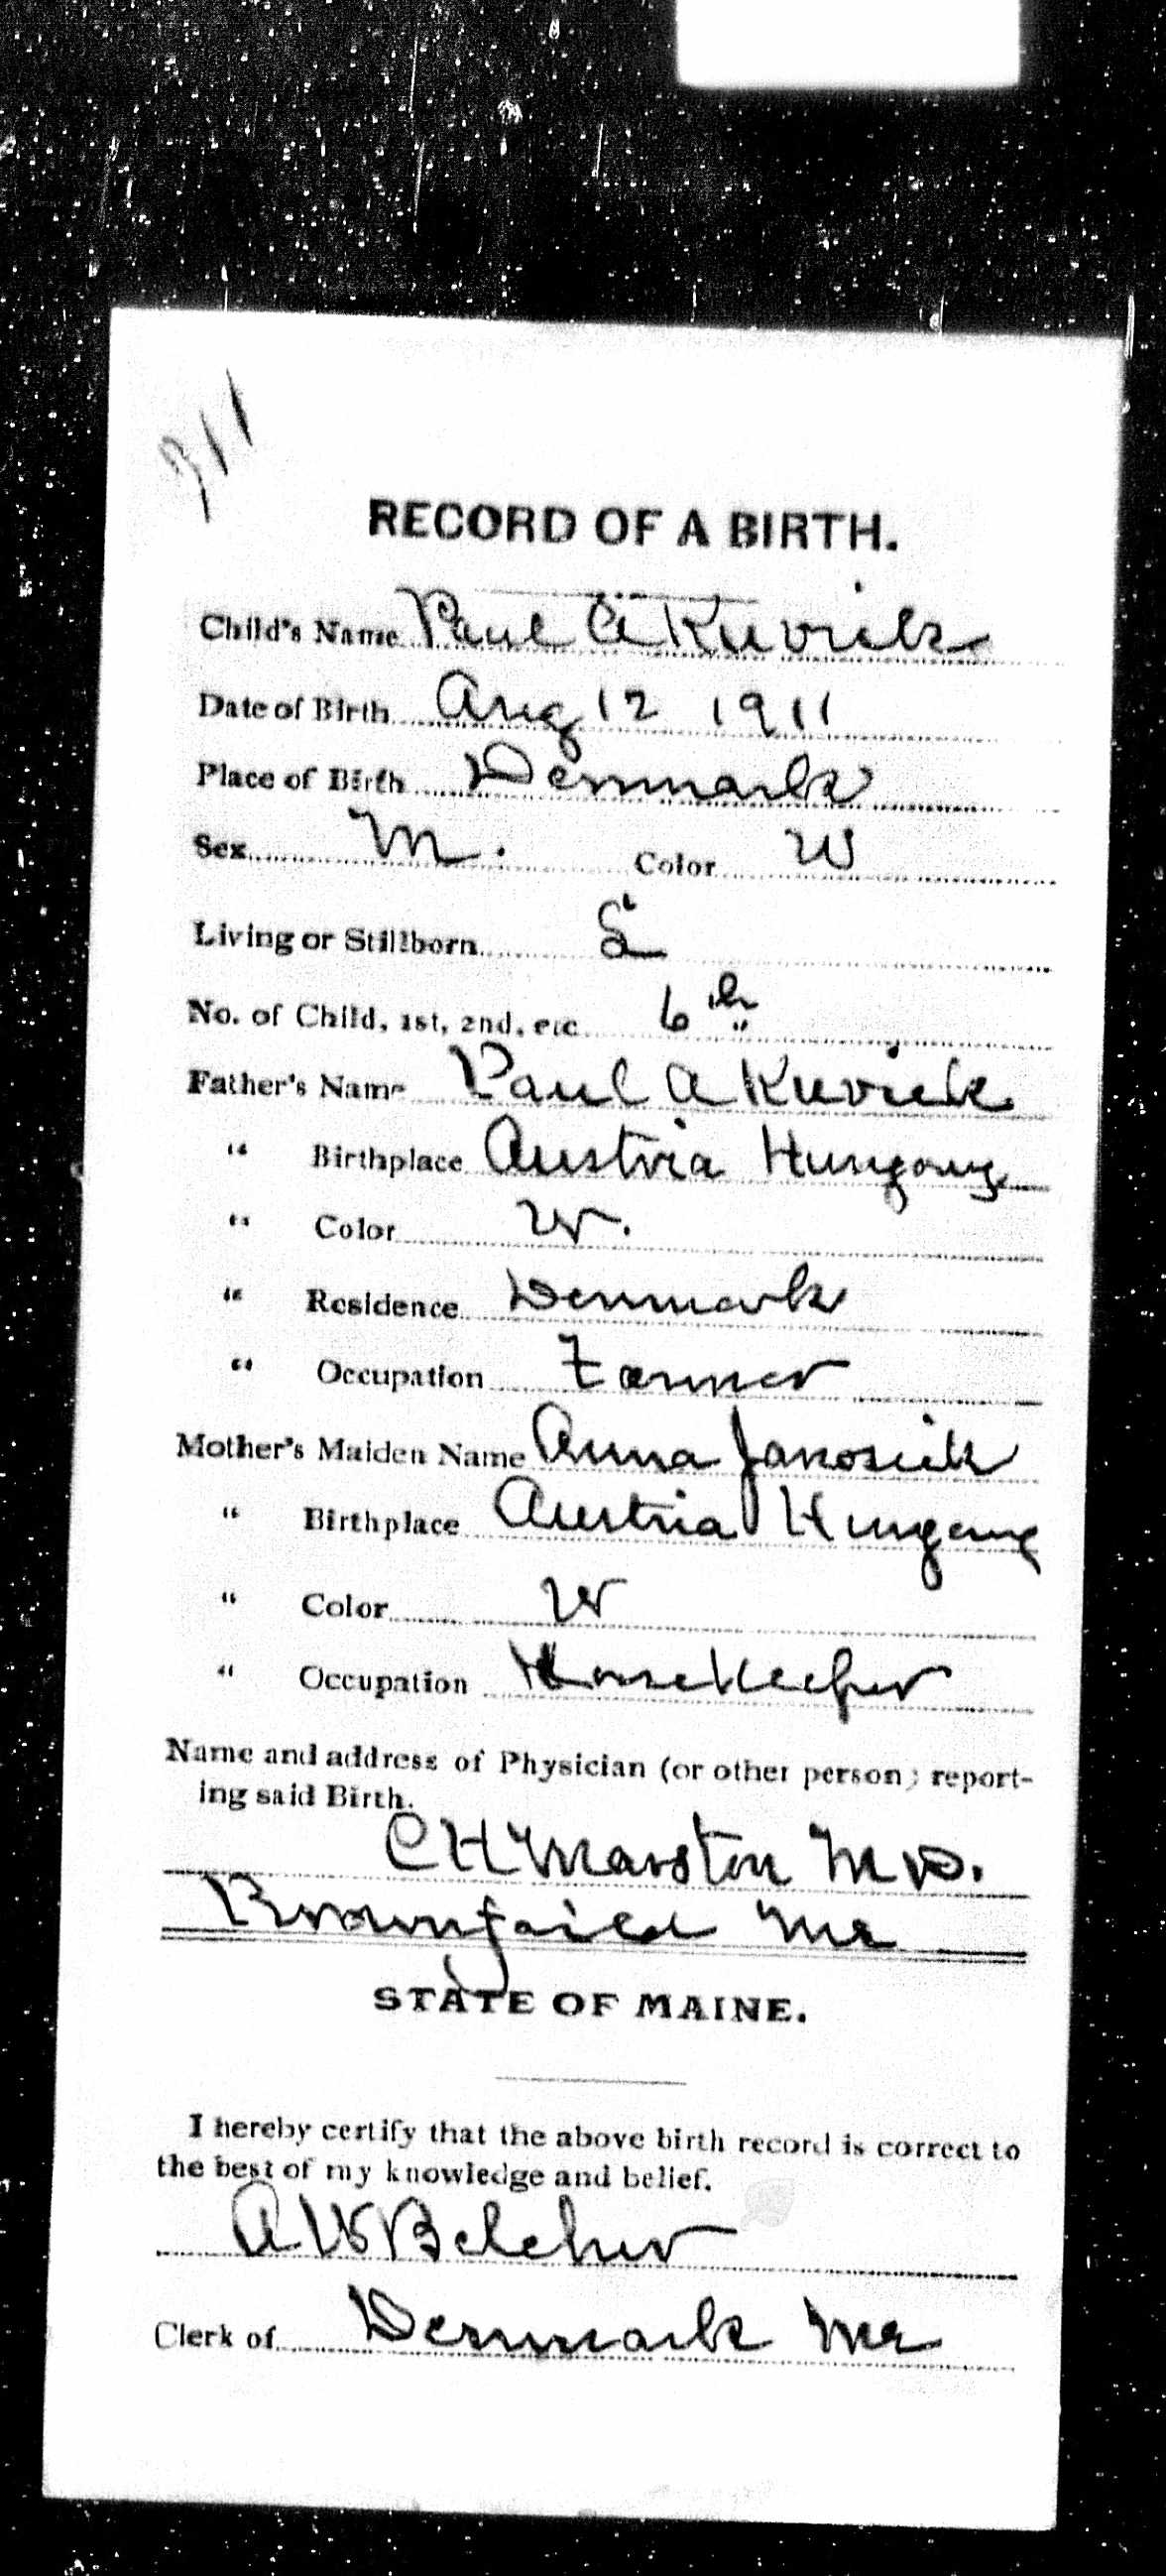 311
RECORD OF A BIRTH.
Child's Name Paul A Kuvrik
Date of Birth Aug 12 1911
Place of Birth Denmark
Sex M. Color W
Living or Stillborn L
No. of Child, 1st, 2nd, etc 6th
Father's Name Paul A Kuvrik
" Birthplace Austria Hungary
" Color W.
" Residence Denmark
" Occupation Farmer
Mother's Maiden Name Anna Janosik
" Birthplace Austria Hungary
" Color W
" Occupation HouseKeeper
Name and address of Physician (or other person) report-
ing said Birth.
C H Marston M D.
Brownfield Me
STATE OF MAINE.
I hereby certify that the above birth record is correct to
the best of my knowledge and belief.
A W Belcher
Clerk of Denmark Me